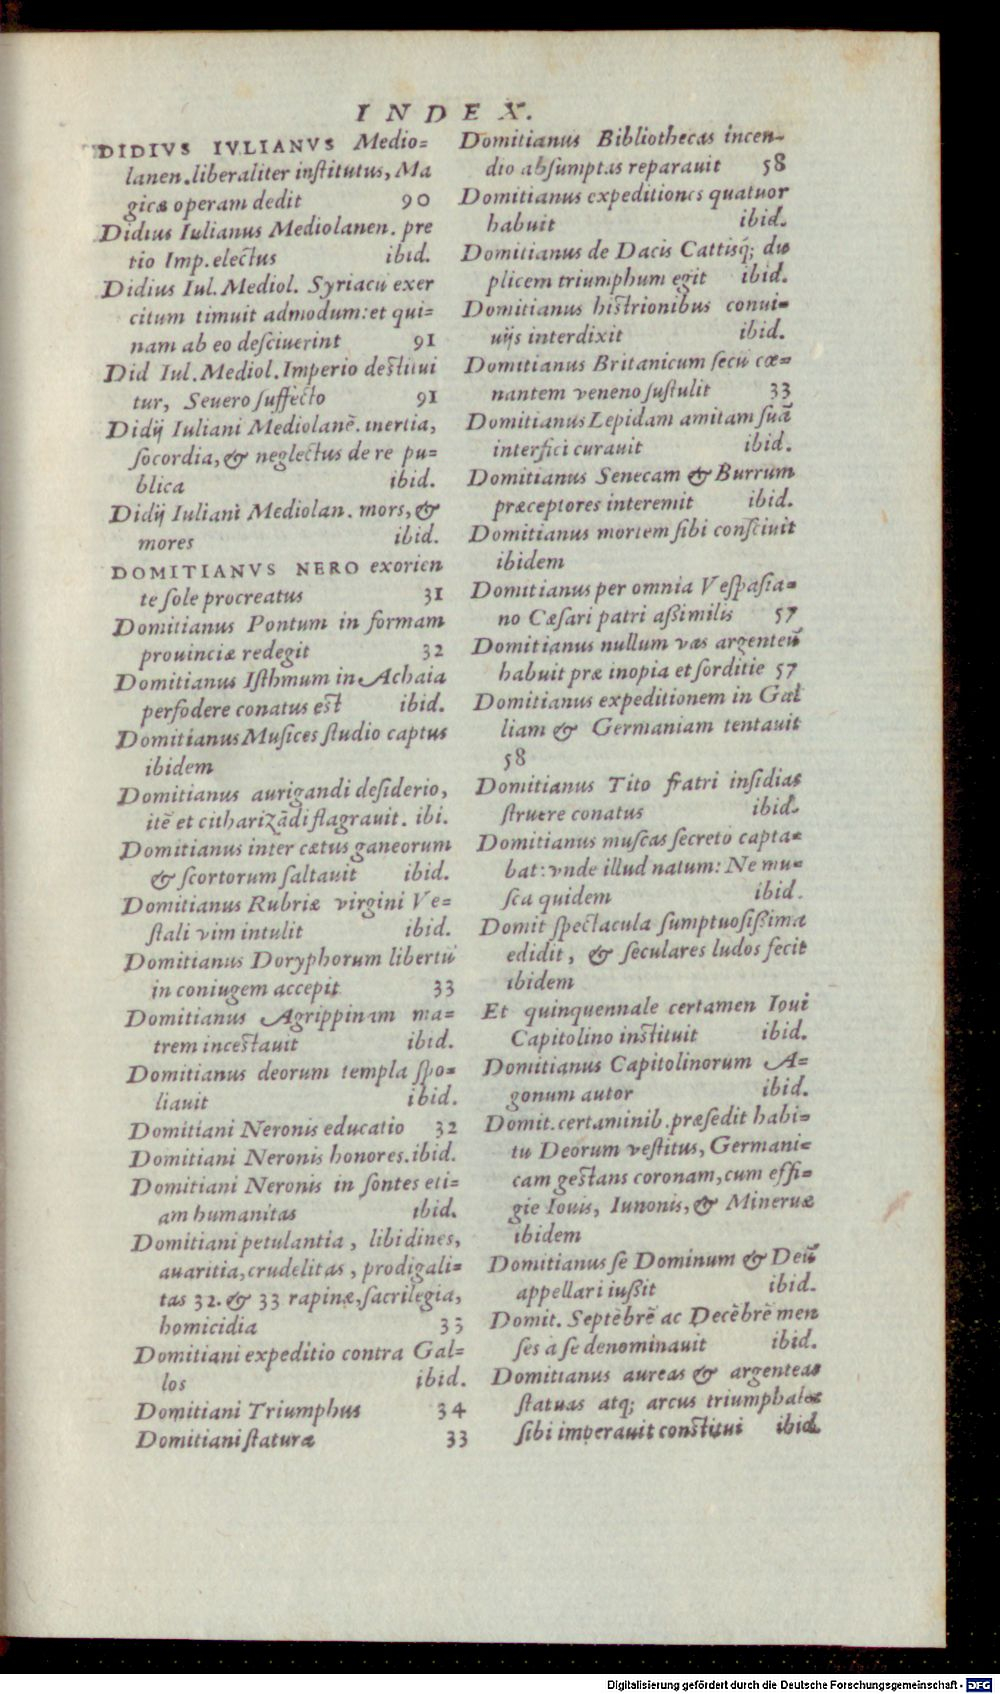 INDEX.
DIDIVS IVLIANVS Medio=
lanen. liberaliter institutus, Ma
gicæ operam dedit 90
Didius Iulianus Mediolanen. pre
tio Imp. electus ibid.
Didius Iul. Mediol. Syriacū exer
citum timuit admodum: et qui=
nam ab eo desciuerint 91
Did Iul. Mediol. Imperio destitui
tur, Seuero suffecto 91
Didij Iuliani Mediolanē. inertia,
socordia, & neglectus de re pu=
blica ibid.
Didij Iuliani Mediolan. mors, &
mores ibid.
DOMITIANVS NERO exorien
te sole procreatus 31
Domitianus Pontum in formam
prouinciæ redegit 32
Domitianus Isthmum in Achaia
perfodere conatus est ibid.
Domitianus Musices studio captus
ibidem
Domitianus aurigandi desiderio,
itē et citharizādi flagrauit. ibi.
Domitianus inter cœtus ganeorum
& scortorum saltauit ibid.
Domitianus Rubriæ virgini Ve=
stali vim intulit ibid.
Domitianus Doryphorum libertū
in coniugem accepit 33
Domitianus Agrippinam ma=
trem incestauit ibid.
Domitianus deorum templa spo=
liauit ibid.
Domitiani Neronis educatio 32
Domitiani Neronis honores. ibid.
Domitiani Neronis in sontes eti=
am humanitas ibid.
Domitiani petulantia, libidines,
auaritia, crudelitas, prodigali=
tas 32. & 33 rapinæ, sacrilegia,
homicidia 33
Domitiani expeditio contra Gal=
los ibid.
Domitiani Triumphus 34
Domitiani staturæ 33
Domitianus Bibliothecas incen-
dio absumptas reparauit 58
Domitianus expeditiones quatuor
habuit ibid.
Domitianus de Dacis Cattisq́; du
plicem triumphum egit ibid.
Domitianus histrionibus conui=
uijs interdixit ibid.
Domitianus Britanicum secū cœ=
nantem veneno sustulit 33
Domitianus Lepidam amitam suā
interfici curauit ibid.
Domitianus Senecam & Burrum
præceptores interemit ibid.
Domitianus mortem sibi consciuit
ibidem
Domitianus per omnia Vespasia=
no Cæsari patri aßimilis 57
Domitianus nullum vas argenteū
habuit præ inopia et sorditie 57
Domitianus expeditionem in Gal
liam & Germaniam tentauit
58
Domitianus Tito fratri insidias
struere conatus ibid.
Domitianus muscas secretò capta=
bat: vnde illud natum: Ne mu=
sca quidem ibid.
Domit spectacula sumptuosißima
edidit, & seculares ludos fecit
ibidem
Et quinquennale certamen Ioui
Capitolino instituit ibid.
Domitianus Capitolinorum A=
gonum autor ibid.
Domit. certaminib. præsedit habi=
tu Deorum vestitus, Germani=
cam gestans coronam, cum effi=
gie Iouis, Iunonis, & Mineruæ
ibidem
Domitianus se Dominum & Deū
appellari iußit ibid.
Domit. Septēbrē ac Decēbrē men
ses à se denominauit ibid.
Domitianus aureas & argenteas
statuas atq; arcus triumphales
sibi imperauit constitui ibid.
Digitalisierung gefördert durch die Deutsche Forschungsgemeinschaft - DFG